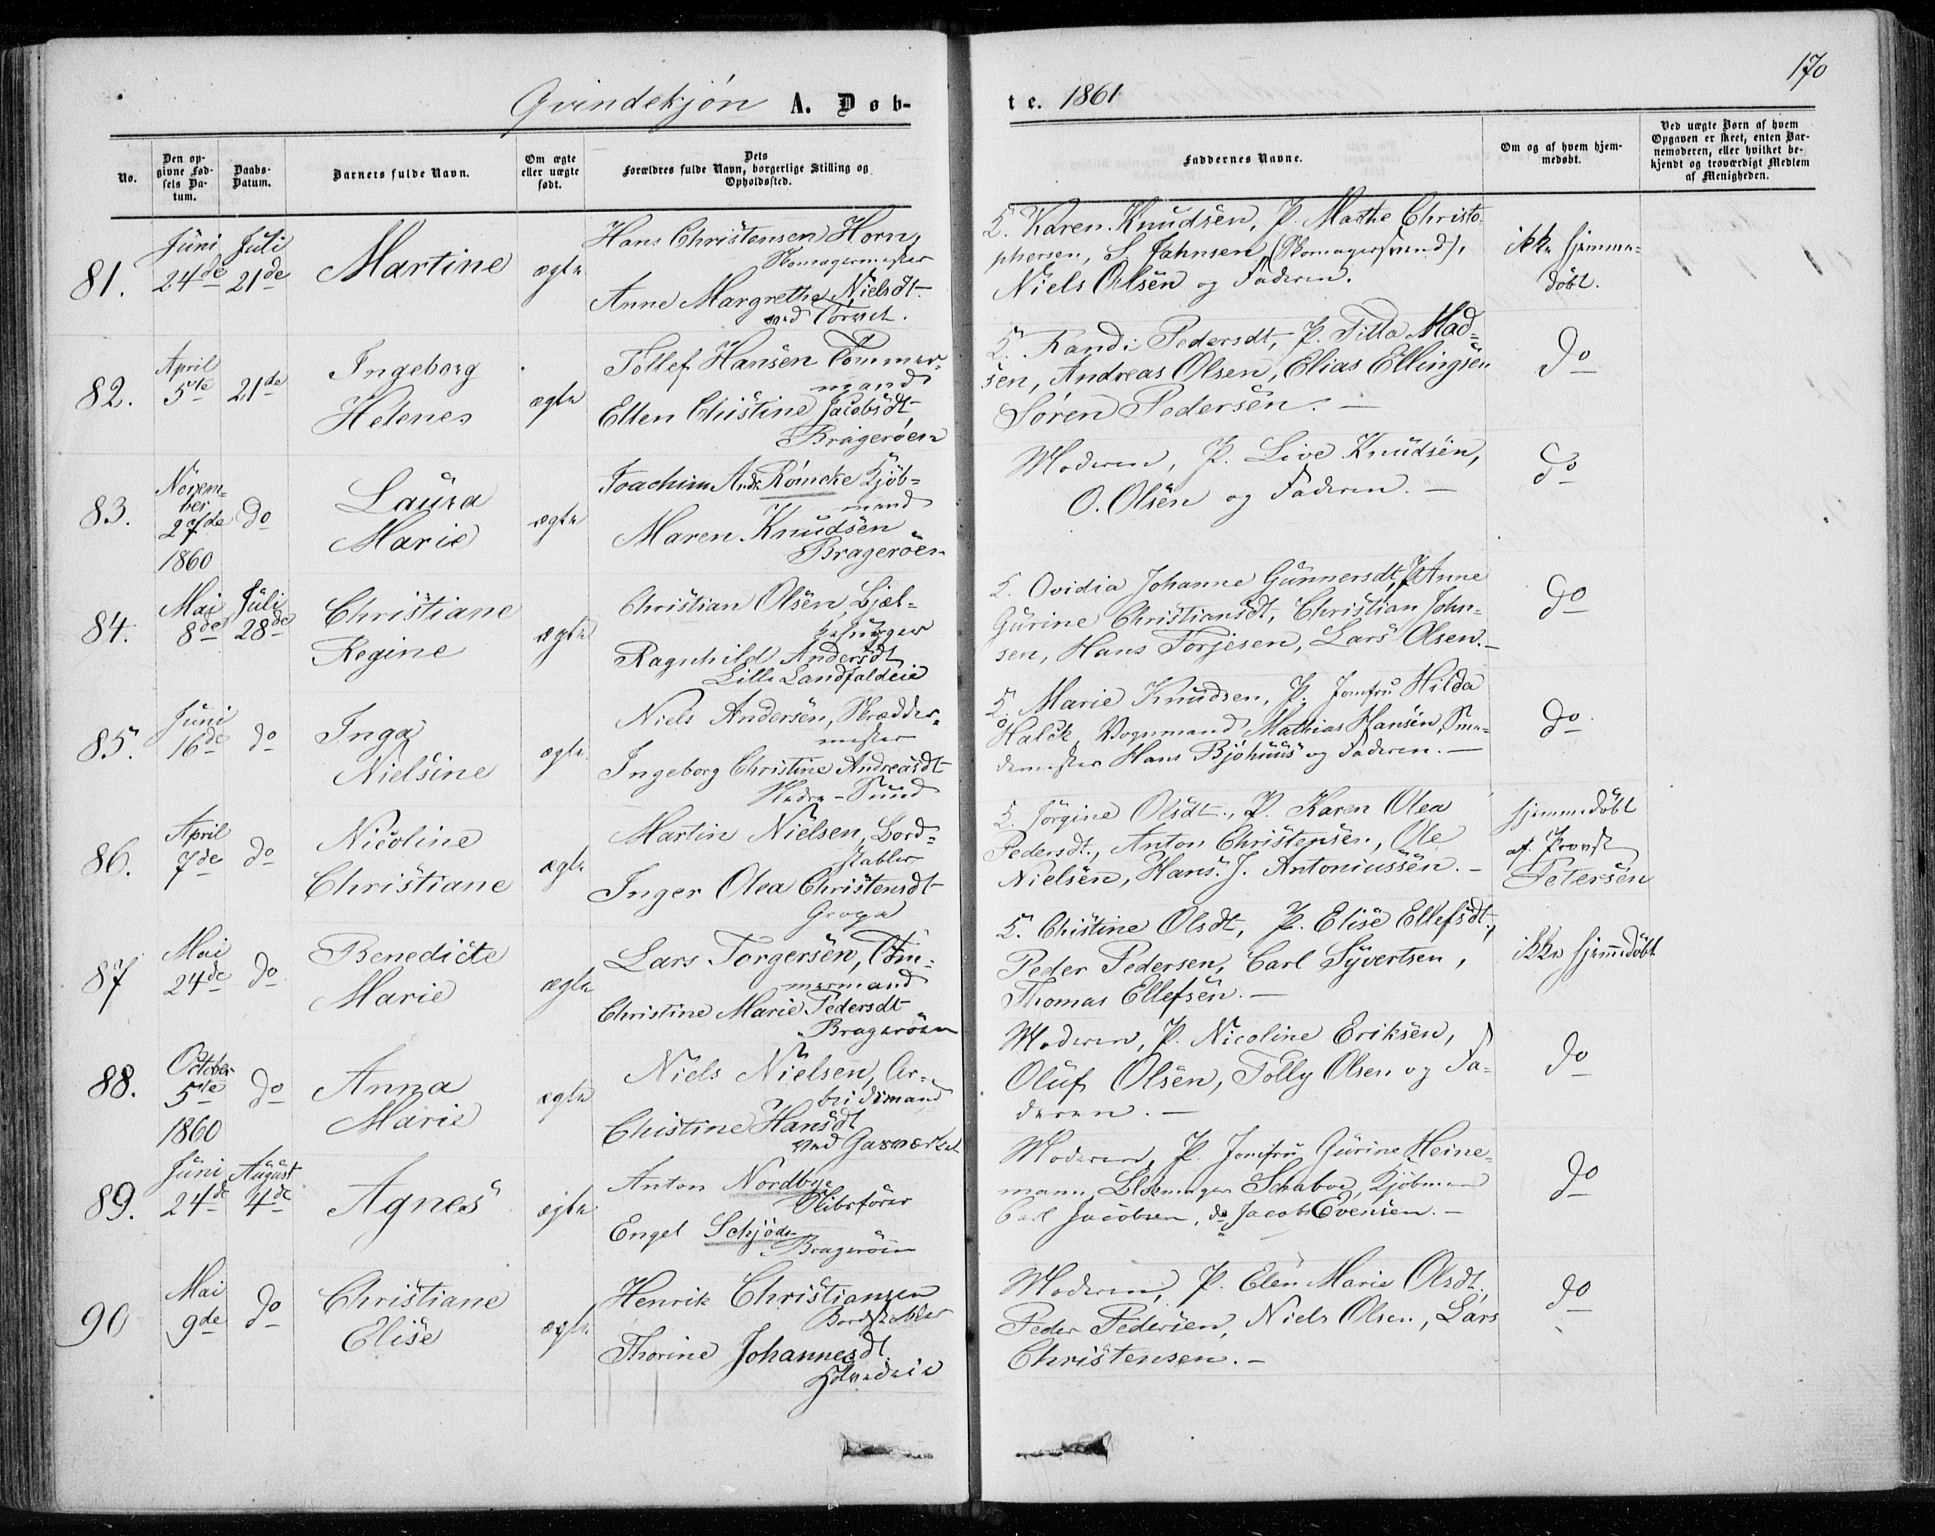 170
Qvindekjón A. Døb-
te. 1861
No.
Den op-
givne Fød-
sels Da-
tum.
Daabs-
Datum.
Barnets fulde Navn.
Om ægte
eller uægte
født.
Dets
Forældres fulde Navn, borgerlige Stilling og
Opholdssted.
Faddernes Navne.
Om og af hvem hjem-
medøbt.
Ved uægte Børn af hvem
Opgaven er skeet, enten Bar-
nemoderen, eller hvilket be-
kjendt og troværdigt Medlem
af Menigheden.
81.
Juni
24de
Juli
21de
Martine
ægte
Hans Christensen Horn,
Skomagermester
Anne Margrethe Nielsdt.
ved Torvet.
Karen Knudsen, P. Marthe Christo-
phersen, S. Jahnsen, (Skomagersvend),
Niels Olsen og Faderen.
ikke hjemme-
døbt.
82.
April
5te
21de
Ingeborg
Helene
ægte
Tollef Hansen Tømmer-
mand
Ellen Christine Jacobsdt,
Bragerøen
Randi Pedersdt, P. Titta Mad-
sen, Andreas Olsen, Elias Ellingsen
Søren Pedersen. —
do
83.
Novem-
ber
27de
1860
do
Laura
Marie
ægte
Joachim Andr. Römcke Kjöb-
mand
Maren Knudsen
Bragerøen
Moderen, P. Live Knudsen,
O. Olsen og Faderen. —
do
84.
Mai
8de
Juli
28de
Christiane
Regine
ægte
Christian Olsen,
Ragnhild Andersdt
Lille Landfaldeie
Ovidia Johanne Gunnersdt, P. Anne
Gurine Christiansdt, Christian John-
sen, Hans Torjesen, Lars Olsen. —
do
85.
Juni
16de
do
Inga
Nielsine
ægte
Niels Andersen, Skrædder-
mester
Ingeborg Christine Andreasdt
Nedre-Sund
Marie Knudsen, P. Jomfru Hilda
Halck, Vognmand Mathias Hansen, Sme-
demester Hans Bjöhuus og Faderen. —
do
86.
April
7de
do
Nicoline
Christiane
ægte
Martin Nielsen, Bord-
stabler
Inger Olea Christensdt
Jörgine Olsdt., P. Karen Olea
Pedersdt., Anton Christensen, Ole
Nielsen, Hans. J. Antoniussen. —
hjemmedöbt
af Provst
Petersen
87
Mai
24de
do
Benedicte
Marie
ægte
Lars Torgersen, Töm-
mermand
Christine Marie Pedersdt
Bragerøen
Christine Olsdt, P. Elise Ellefsdt.,
Peder Pedersen, Carl Syvertsen,
Thomas Ellefsen. —
ikke hjemmedöbt
88.
October
5te
1860
do
Anna
Marie
ægte
Niels Nielsen, Ar-
beidsmand
Christine Hansdt
ved Gasværket
Moderen, P. Nicoline Eriksen,
Oluf Olsen, Tolly Olsen og Fa-
deren. —
do
89.
Juni
24de
August
4de
Agnes
ægte
Anton Nordbye
Skibsförer
Engel Schjöde
Bragerøen
Moderen, P. Jomfru Gurine Heine-
mann, Schaboe, Kjöbm
Carl Jacobsen, do Jacob Evensen. —
do
90
Mai
9de
do
Christiane
Elise
ægte
Henrik Christiansen
Bordstabler
Thorine Johannesdt
Moderen, P. Elen Marie Olsdt,
Peder Pedersen, Niels Olsen, Lars
Christensen. —
do